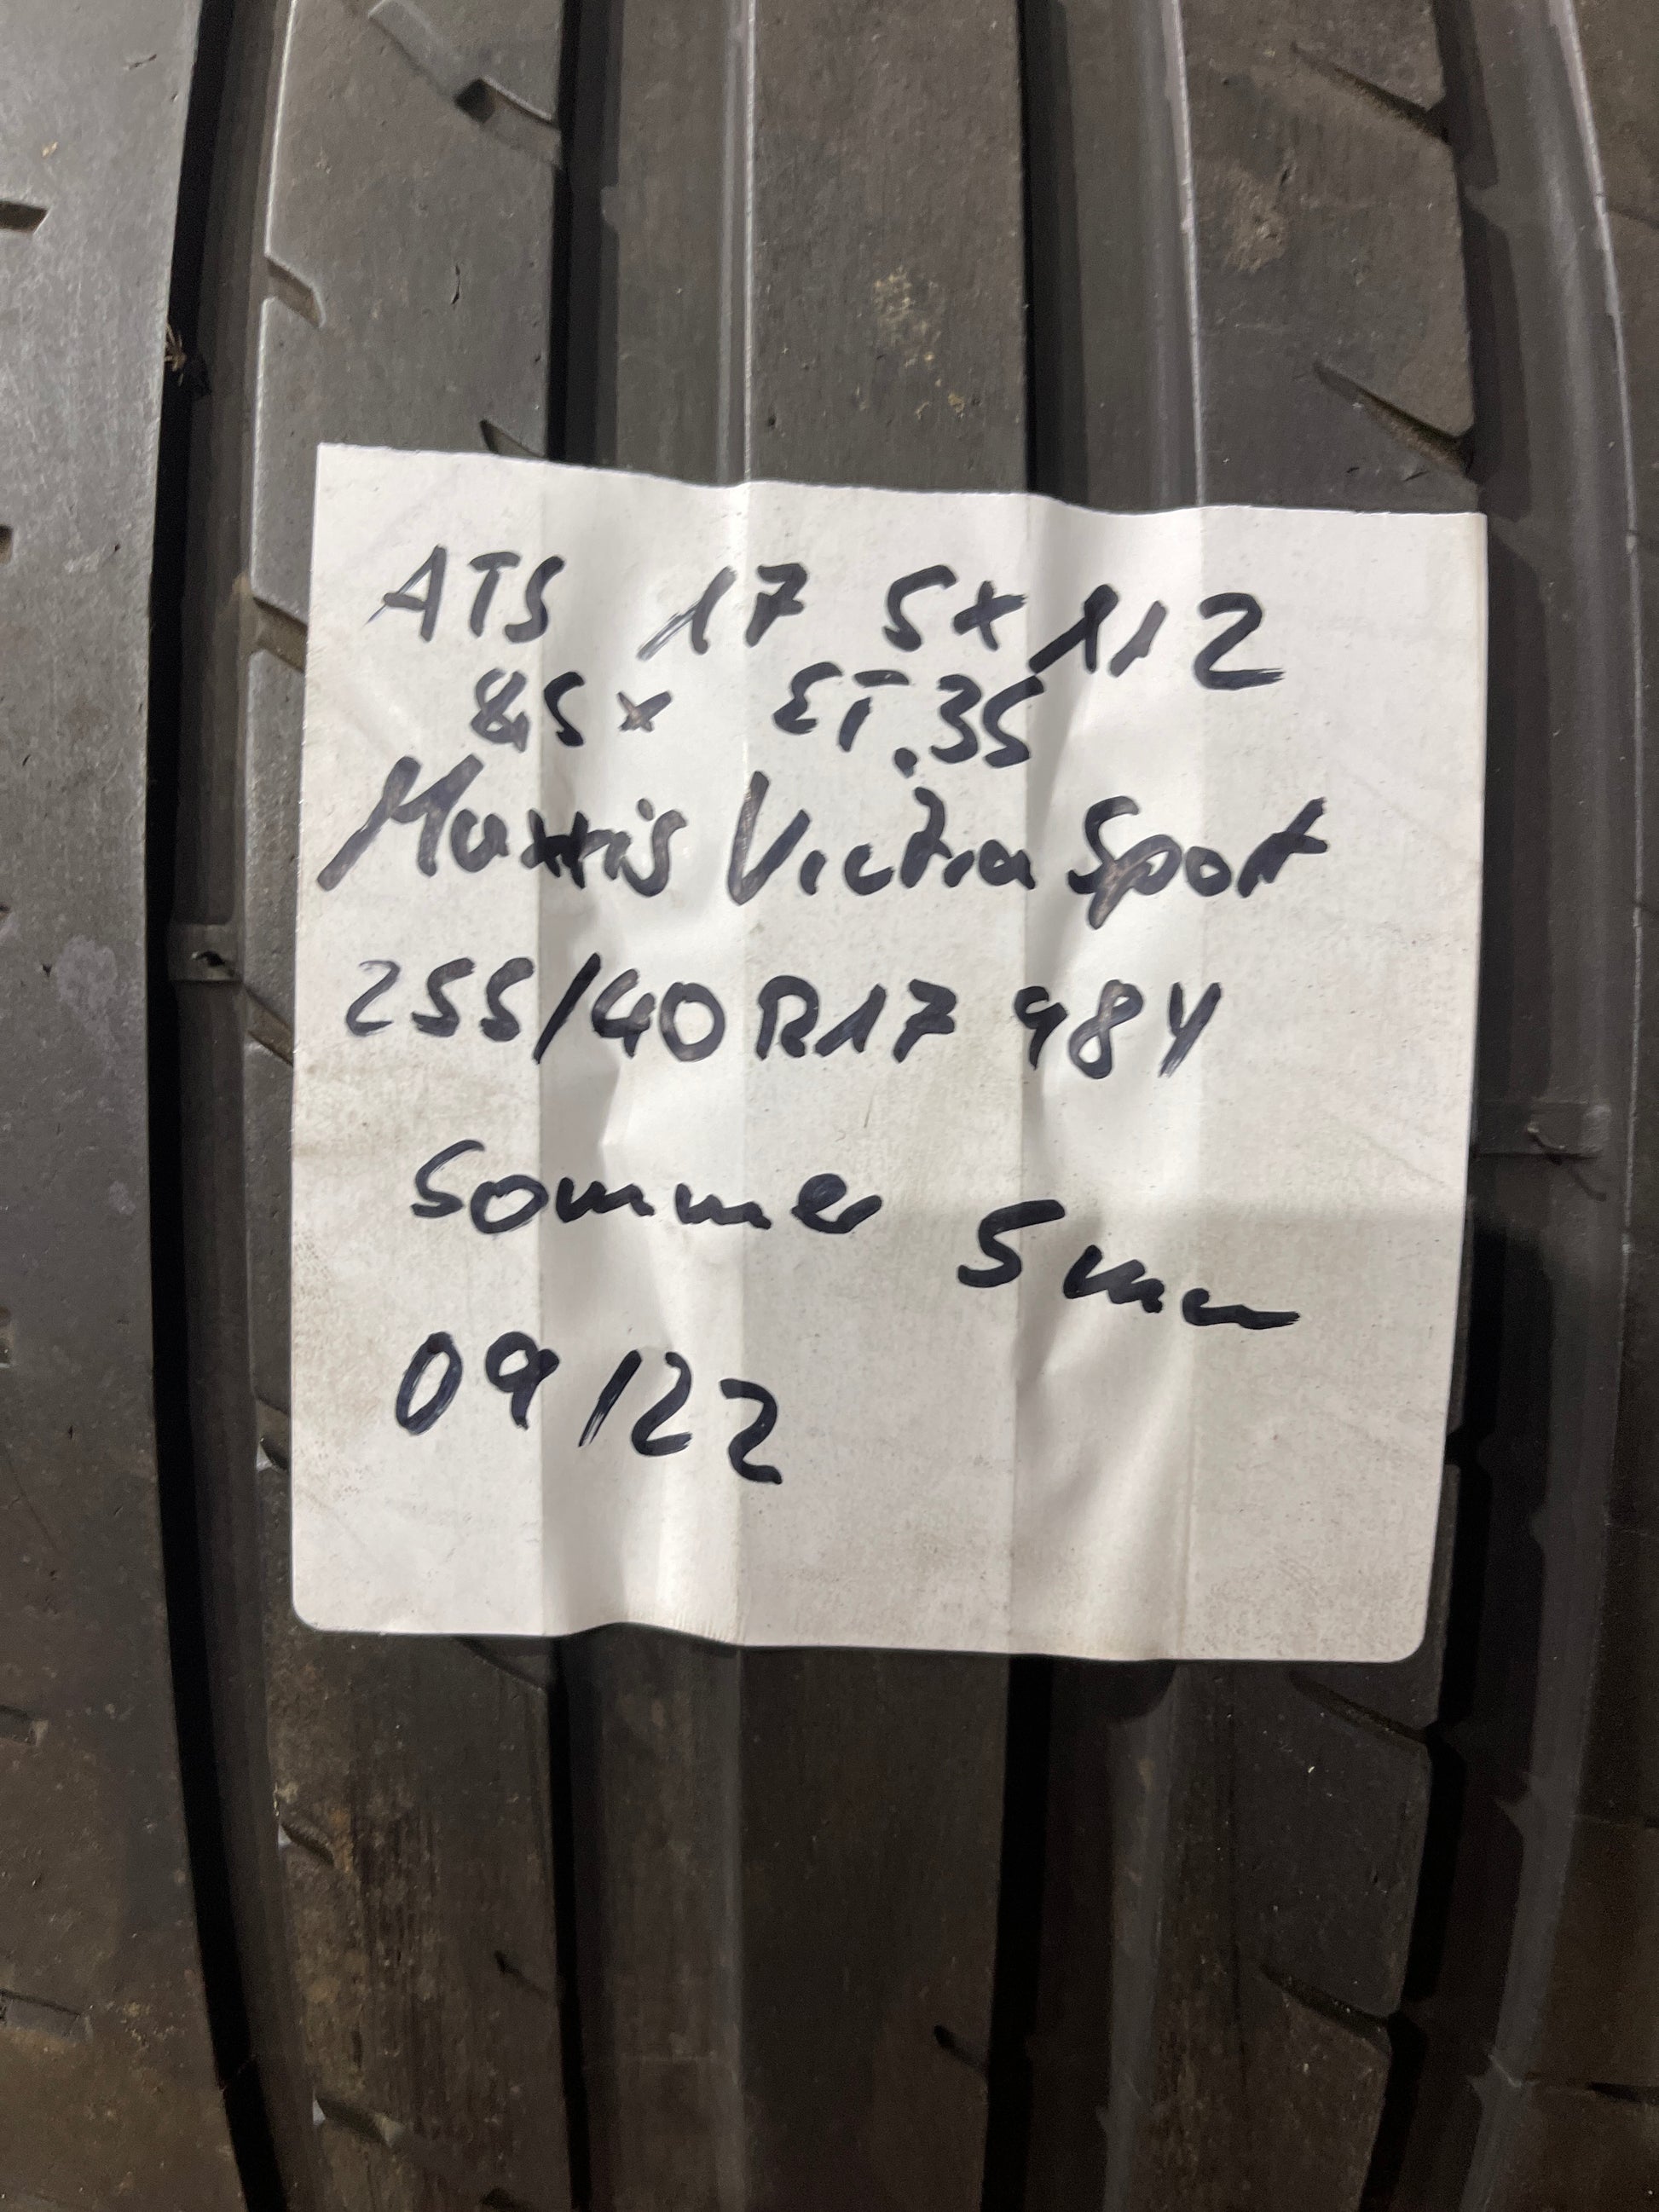 ATS 17 5x112
8,5x ET.35
Maxxis Victra Sport
255/40 R17 98Y
Sommer 5mm
09/22